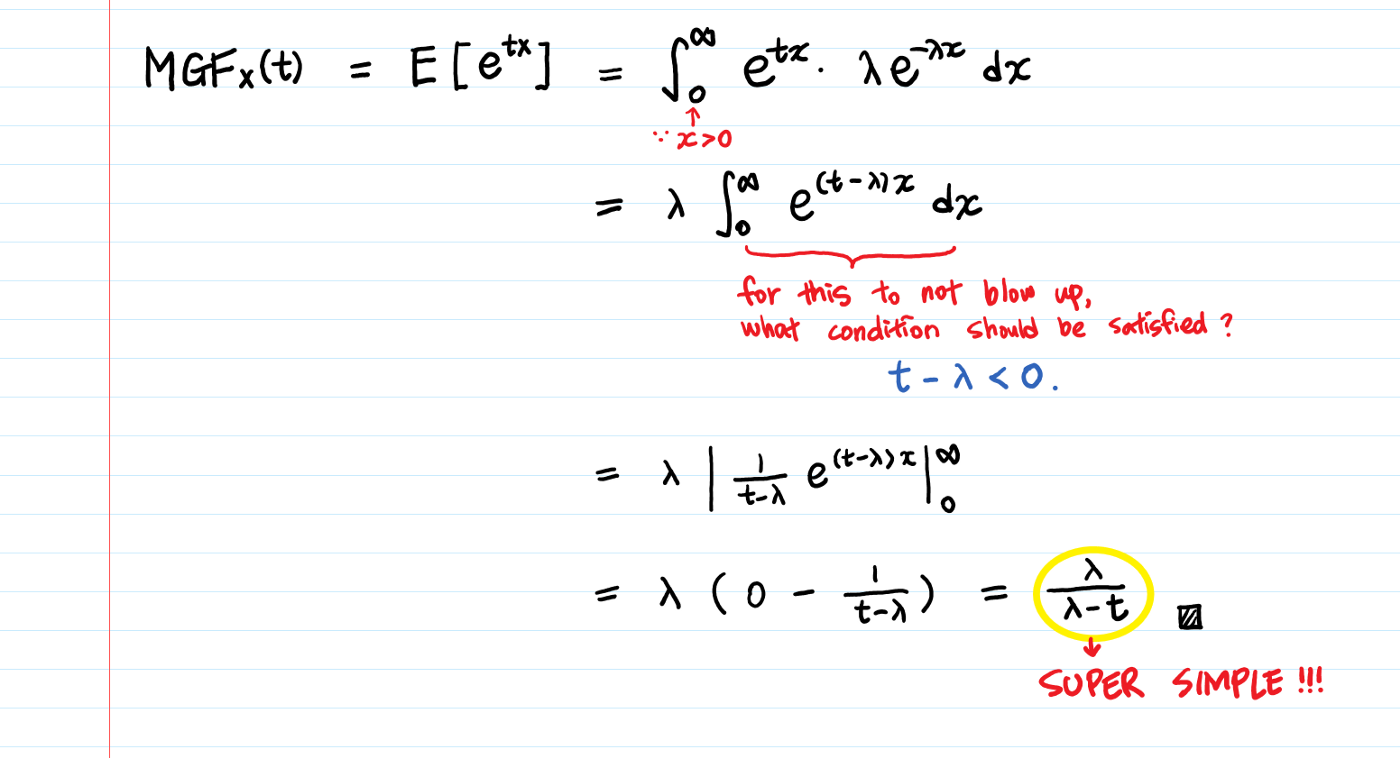 MGFₓ(t) = E[eᵗˣ] = ∫₀^∞ e^{tx} · λe^{-λx} dx
∵ x>0
= λ ∫₀^∞ e^{(t-λ)x} dx
for this to not blow up,
what condition should be satisfied?
t - λ < 0.
= λ | 1/(t-λ) e^{(t-λ)x} |₀^∞
= λ ( 0 - 1/(t-λ) ) = λ/(λ-t)
SUPER SIMPLE!!!